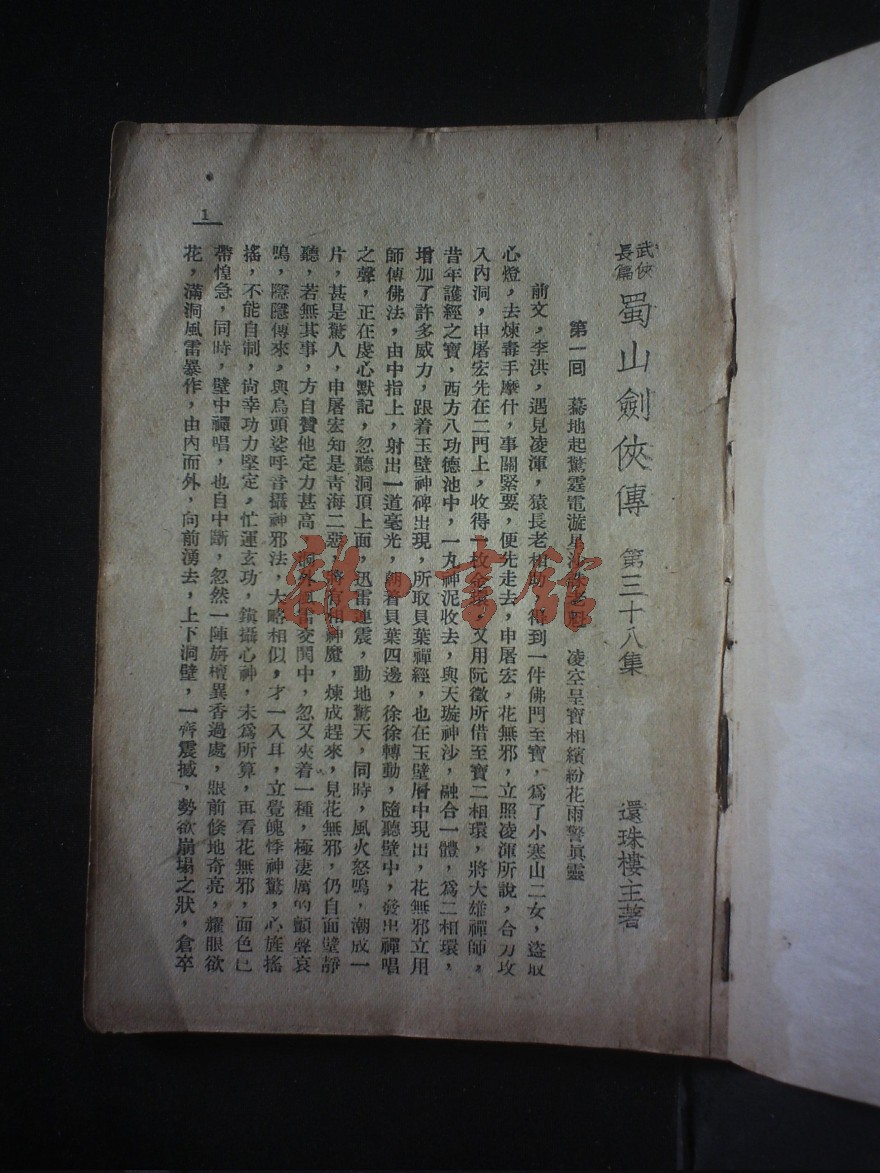 武俠長篇 蜀山劍俠傳 第三十八集 還珠樓主著
第一回 驀地起驚霆電漩星沙誅老魅 凌空呈寶相繽紛花雨警眞靈
前文，李洪，遇見凌渾，猿長老相助，得到一件佛門至寶，爲了小寒山二女，盜取
心燈，去煉毒手摩什，事關緊要，便先走去，申屠宏，花無邪，立照凌渾所說，合力攻
入內洞，申屠宏先在二門上，收得一枚金環，又用阮徵所借至寶二相環，將大雄禪師，
昔年護經之寶，西方八功德池中，一丸神泥收去，與天璇神沙，融合一體，爲二相環，
增加了許多威力，跟着玉壁神碑出現，所取貝葉禪經，也在玉壁層中現出，花無邪立用
師傳佛法，由中指上，射出一道毫光，朝着貝葉四邊，徐徐轉動，隨聽壁中，發出禪唱
之聲，正在虔心默記，忽聽洞頂上面，迅雷連震，動地驚天，同時，風火怒鳴，潮成一
片，甚是驚人，申屠宏知是靑海二惡，將有相神魔，煉成趕來，見花無邪，仍自面壁靜
聽，若無其事，方自贊他定力甚高，洞外風雷交鬨中，忽又夾着一種，極淒厲的顫聲哀
鳴，隱隱傳來，與烏頭婆呼音攝神邪法，大略相似，才一入耳，立覺魄悸神驚，心旌搖
搖，不能自制，尙幸功力堅定，忙運玄功，鎮攝心神，未爲所算，再看花無邪，面色已
帶惶急，同時，壁中禪唱，也自中斷，忽然一陣旃檀異香過處，眼前倏地奇亮，耀眼欲
花，滿洞風雷暴作，由內而外，向前湧去，上下洞壁，一齊震撼，勢欲崩塌之狀，倉卒
1
雜·書館